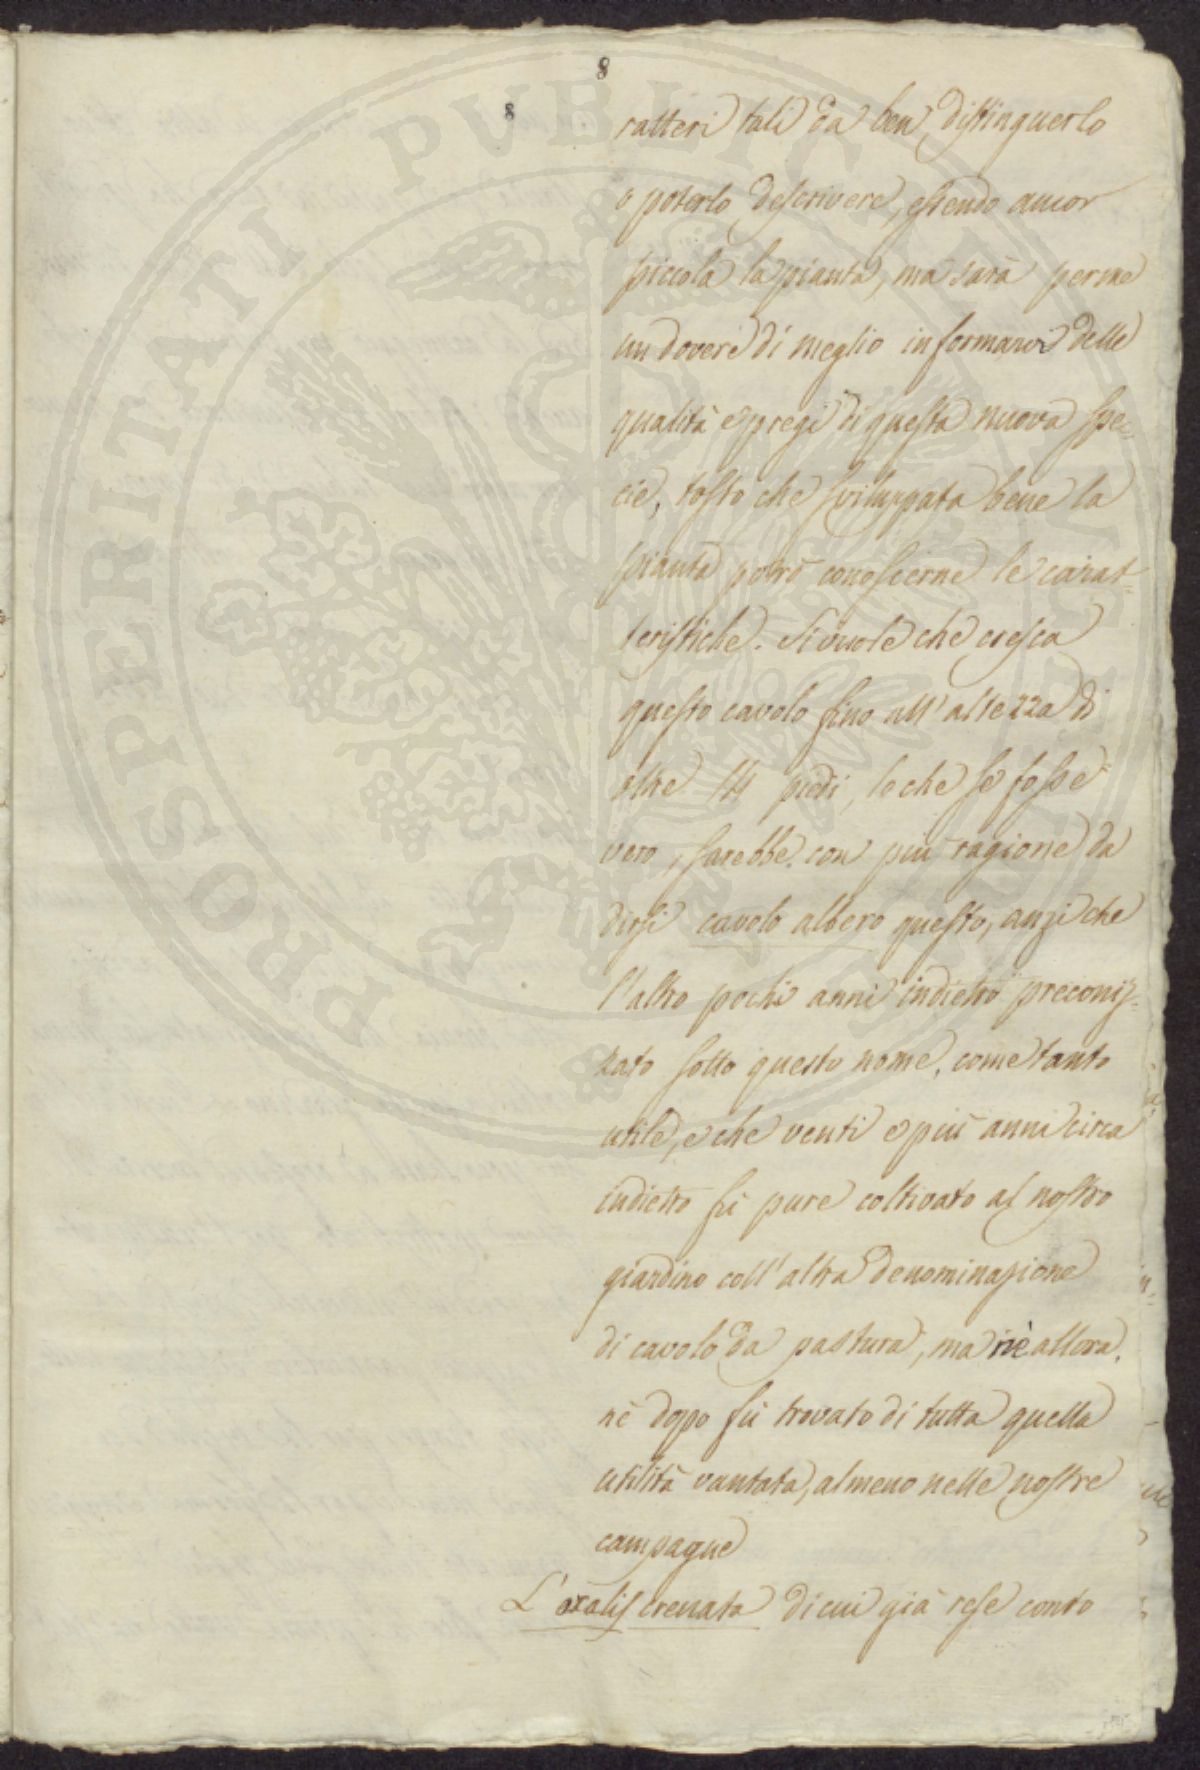 8
8
ratteri tali da ben distinguerlo
o poterlo descrivere, essendo ancor
piccola la pianta, ma sarà per me
un dovere di meglio informarvi delle
qualità e pregi di questa nuova spe-
cie, tosto che sviluppata bene la
pianta potrò conoscierne le carat-
teristiche. Si vuole che cresca
questo cavolo fino all'altezza di
oltre 14 piedi, lo che se fosse
vero, sarebbe con più ragione da
dirsi cavolo albero questo, anziche
l'altro pochi anni indietro preconiz-
zato sotto questo nome, come tanto
utile, e che venti e più anni circa
indietro fù pure coltivato al nostro
giardino coll'altra denominazione
di cavolo da pastura, ma nè allora,
nè dopo fù trovato di tutta quella
utilità vantata, almeno nelle nostre
campagne
L'oxalis crenata di cui già rese conto
PROSPERITATI PUBLICAE